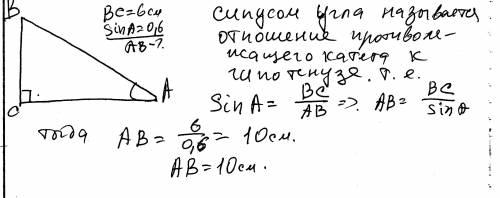 B
BC=6см
SinA=0,6
AB-?
C
A
Синусом угла называется
отношение противоле-
жащего катета к
гипотенузе. т.е.
SinA = BC/AB => AB = BC/Sinθ
тогда AB = 6/0,6 = 10см.
AB=10см.